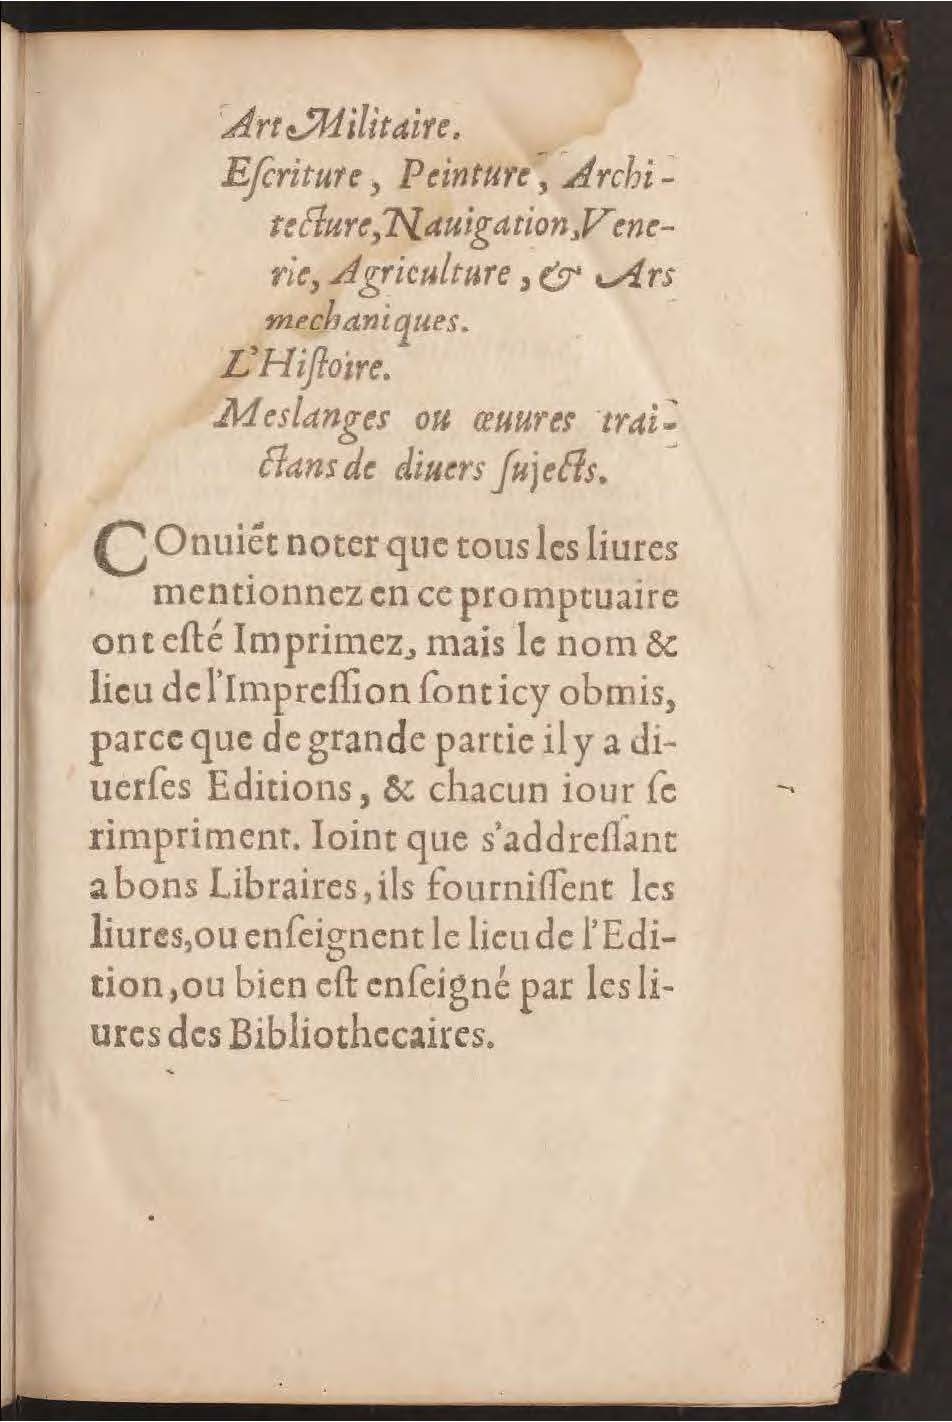 Art Militaire.
Eſcriture, Peinture, Archi-
tecture, Nauigation, Vene-
rie, Agriculture, & Ars
mechaniques.
L'Hiſtoire.
Meslanges ou œuures trai-
ctans de diuers ſujects.
COnuiẽt noter que tous les liures
mentionnez en ce promptuaire
ont eſté Imprimez, mais le nom &
lieu de l'Impreſſion ſont icy obmis,
parce que de grande partie il y a di-
uerſes Editions, & chacun iour ſe
rimpriment. Ioint que s'addreſſant
a bons Libraires, ils fourniſſent les
liures, ou enſeignent le lieu de l'Edi-
tion, ou bien eſt enſeigné par les li-
ures des Bibliothecaires.